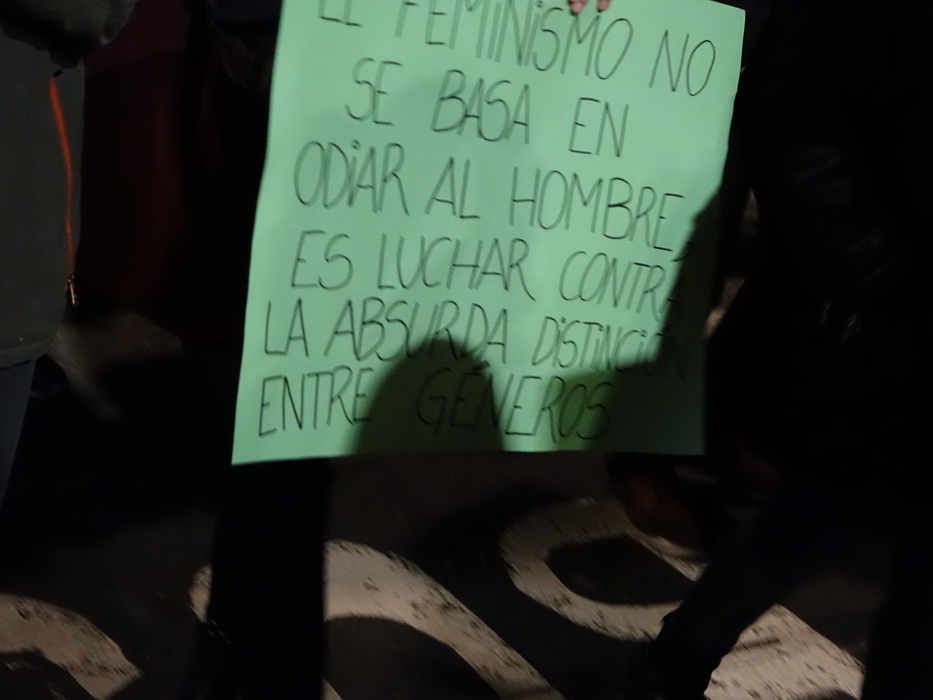 EL FEMINISMO NO
SE BASA EN
ODIAR AL HOMBRE,
ES LUCHAR CONTRA
LA ABSURDA DISTINCIÓN
ENTRE GÉNEROS